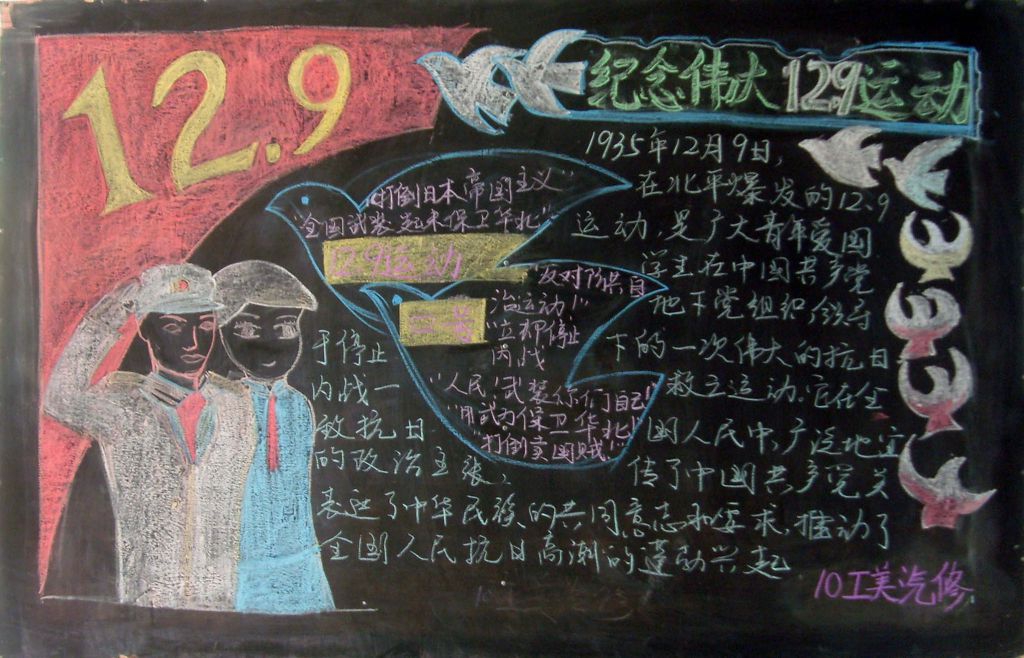 12.9
纪念伟大129运动
1935年12月9日，
在北平爆发的12.9
运动，是广大青年爱国
学生在中国共产党
地下党组织领导
下的一次伟大的抗日
救亡运动.它在全
国人民中，广泛地宣
传了中国共产党关
于停止
内战一
致抗日
的政治主张，
表达了中华民族的共同意志和要求，推动了
全国人民抗日高潮的运动兴起
打倒日本帝国主义"
"全国武装起来保卫华北"
129运动
反对防共自
治运动！"
"立即停止
内战
"人民！武装你们自己！
打倒卖国贼！
10工美汽修